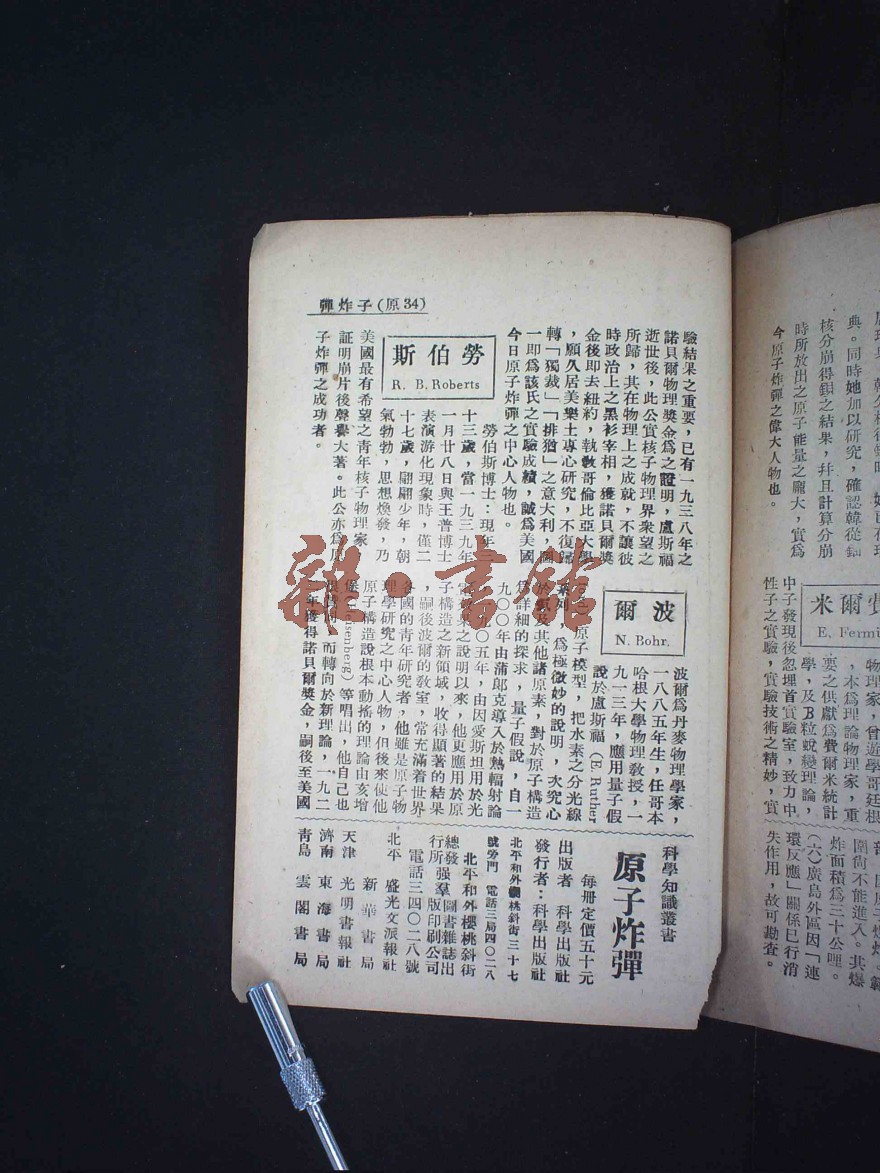 彈炸子(原34)
驗結果之重要,已有一九三八年之
諾貝爾物理獎金爲之證明,盧斯福
逝世後,此公實核子物理界衆望之
所歸,其在物理上之成就,不讓彼
時政治上之黑衫宰相,獲諾貝爾獎
金後即去紐約,執敎哥倫比亞大學
,願久居美樂土專心研究,不復歸
轉「獨裁」「排猶」之意大利,
一即爲該氏之實驗成績,誠爲美國
今日原子炸彈之中心人物也。
勞伯斯
R. B. Roberts
勞伯斯博士:現年三
十三歲,當一九三九年
一月廿八日與王普博士
表演游化現象時,僅二
十七歲,翩翩少年,朝
氣勃勃,思想煥發,乃
美國最有希望之青年核子物理家
証明崩片後聲譽大著。此公亦爲原
子炸彈之成功者。
波爾
N. Bohr.
波爾爲丹麥物理學家,
一八八五年生,任哥本
哈根大學物理敎授,一
九一三年,應用量子假
說於盧斯福(E. Ruther
之原子模型,把水素之分光線
系列,爲極微妙的說明,次究心
於氦及其他諸原素,對於原子構造
爲詳細的探求,量子假說,自一
九〇〇年由蒲郎克導入於熱輻射論
一九〇五年,由因愛斯坦用於光
電效果之說明以來,他更應用於原
子構造之新領域,收得顯著的結果
,嗣後波爾的敎室,常充滿着世界
各國的青年研究者,他雖是原子物
理學研究之中心人物,但後來使他
原子構造說根本動搖的理論由亥增
堡(Heisenberg)等唱出,他自己也
而轉向於新理論,一九二
年獲得諾貝爾獎金,嗣後至美國
科學知識叢書
原子炸彈
每册定價五十元
出版者 科學出版社
發行者:科學出版社
北平和外櫻桃斜街三十七
號旁門 電話三局四〇二八
北平和外櫻桃斜街
總發强羣圖書雜誌出
行所 版印刷公司
電話三四〇二八號
北平 盛光文派報社
新華書局
天津 光明書報社
濟南 東海書局
青島 雲閣書局
典。同時她加以研究,確認韓從鈾
核分崩得鋇之結果,幷且計算分崩
時所放出之原子能量之龐大,實爲
今原子炸彈之偉大人物也。
費爾米
E. Fermi
物理家,曾遊學哥廷根
,本爲理論物理家,重
要之供獻爲費爾米統計
學,及B粒蛻變理論,
中子發現後忽埋首實驗室,致力中
性子之實驗,實驗技術之精妙,實
圍尙不能進入。其爆
炸面積爲三十公哩。
(六)廣島外區因「連
環反應」關係已行消
失作用,故可勘查。
雜·書館